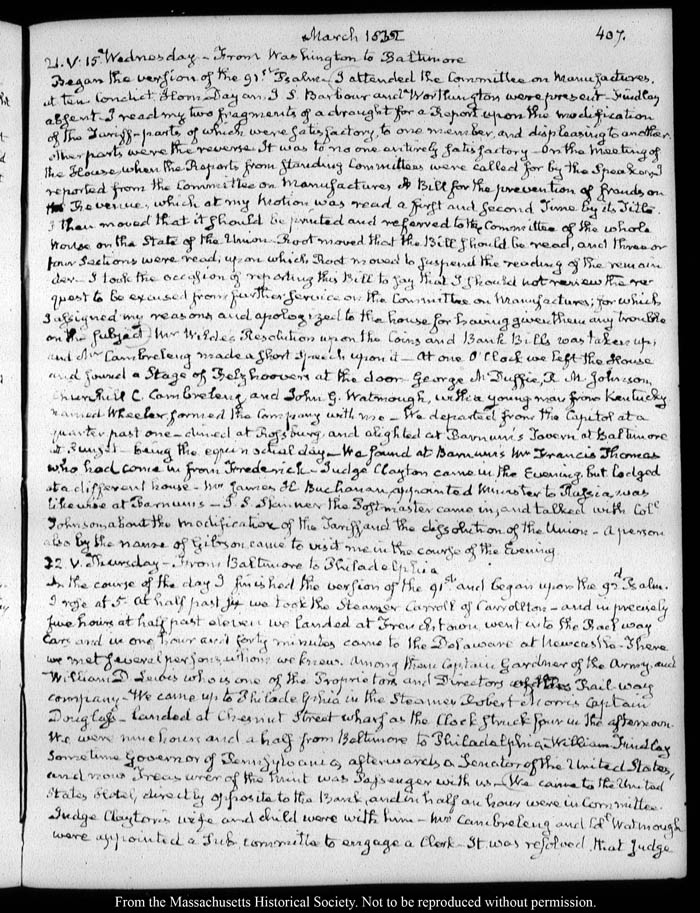 March 1832
407.
21. V: 15. Wednesday – From Washington to Baltimore
Began the version of the 91st Psalm – I attended the Committee on Manufactures,
at ten. Condict, Horn, Dayan, J S. Barbour and Worthington were present – Findlay
absent. I read my two fragments of a draught for a Report upon the modification
of the Tariff – parts of which were satisfactory to one member, and displeasing to another
other parts were the reverse. It was to no one entirely satisfactory – On the meeting of
the House, when the Reports from Standing Committees were called for by the Speaker, I
reported from the Committee on Manufactures A Bill for the prevention of frauds on
the Revenue, which at my motion was read a first and second Time by its Title.
I then moved that it should be printed and referred to the Committee of the whole
House on the State of the Union. Root moved that the Bill should be read, and three or
four Sections were read, upon which Root moved to suspend the reading of the remain
der – I took the occasion of reporting this Bill to say that I should not review the re-
quest to be excused from further service on the Committee on Manufactures; for which
I assigned my reasons, and apologized to the house for having given them any trouble
on the subject. Mr Wilde's Resolution upon the Coins and Bank Bills was taken up,
and Mr Cambreleng made a short speech upon it – At one O'Clock we left the House
and found a Stage of Beltzhoovers at the door. George M.Duffie, R. M. Johnson,
Churchill C. Cambreleng and John G. Watmough, with a young man from Kentucky
named Wheeler, formed the Company with me – We departed from the Capitol at a
quarter past one – dined at Rossburg, and alighted at Barnum's Tavern at Baltimore
at Sunset – being the equinoctial day – We found at Barnum's Mr Francis Thomas
who had come in from Frederick – Judge Clayton came in the Evening, but lodged
at a different house – Mr James Buchanan, appointed Minister to Russia, was
likewise at Barnums – J. S. Skinner the Postmaster came in, and talked with Colt
Johnson about the modification of the Tariff and the dissolution of the Union – A person
also by the name of Gibson came to visit me in the course of the Evening
22. V. Thursday – From Baltimore to Philadelphia
In the course of the day I finished the version of the 91st and began upon the 92d Psalm.
I rose at 5. At half past six we took the Steamer Carroll of Carrollton – and in precisely
five hours at half past eleven we landed at Frenchtown, went into the Rail way
Cars and in one hour and forty minutes came to the Delaware at Newcastle – There
we met several persons whom we knew. Among them Captain Gardner of the Army, and
William D. Lewis who is one of the Proprietors and Directors of this Rail-way
company – We came up to Philadelphia in the Steamer Robert Morris Captain
Douglass – Landed at Chesnut Street wharf as the Clock struck four in the afternoon.
We were nine hours and a half from Baltimore to Philadelphia – William Findlay
Sometime Governor of Pennsylvania, afterwards a Senator of the United States,
and now Treasurer of the Mint was Passenger with us – We came to the United
States Hotel, directly opposite to the Bank, and in half an hour were in Committee.
Judge Clayton's wife and child were with him – Mr Cambreleng and Colt Watmough
were appointed a Sub-committee to engage a Clerk – It was resolved, that Judge
From the Massachusetts Historical Society. Not to be reproduced without permission.